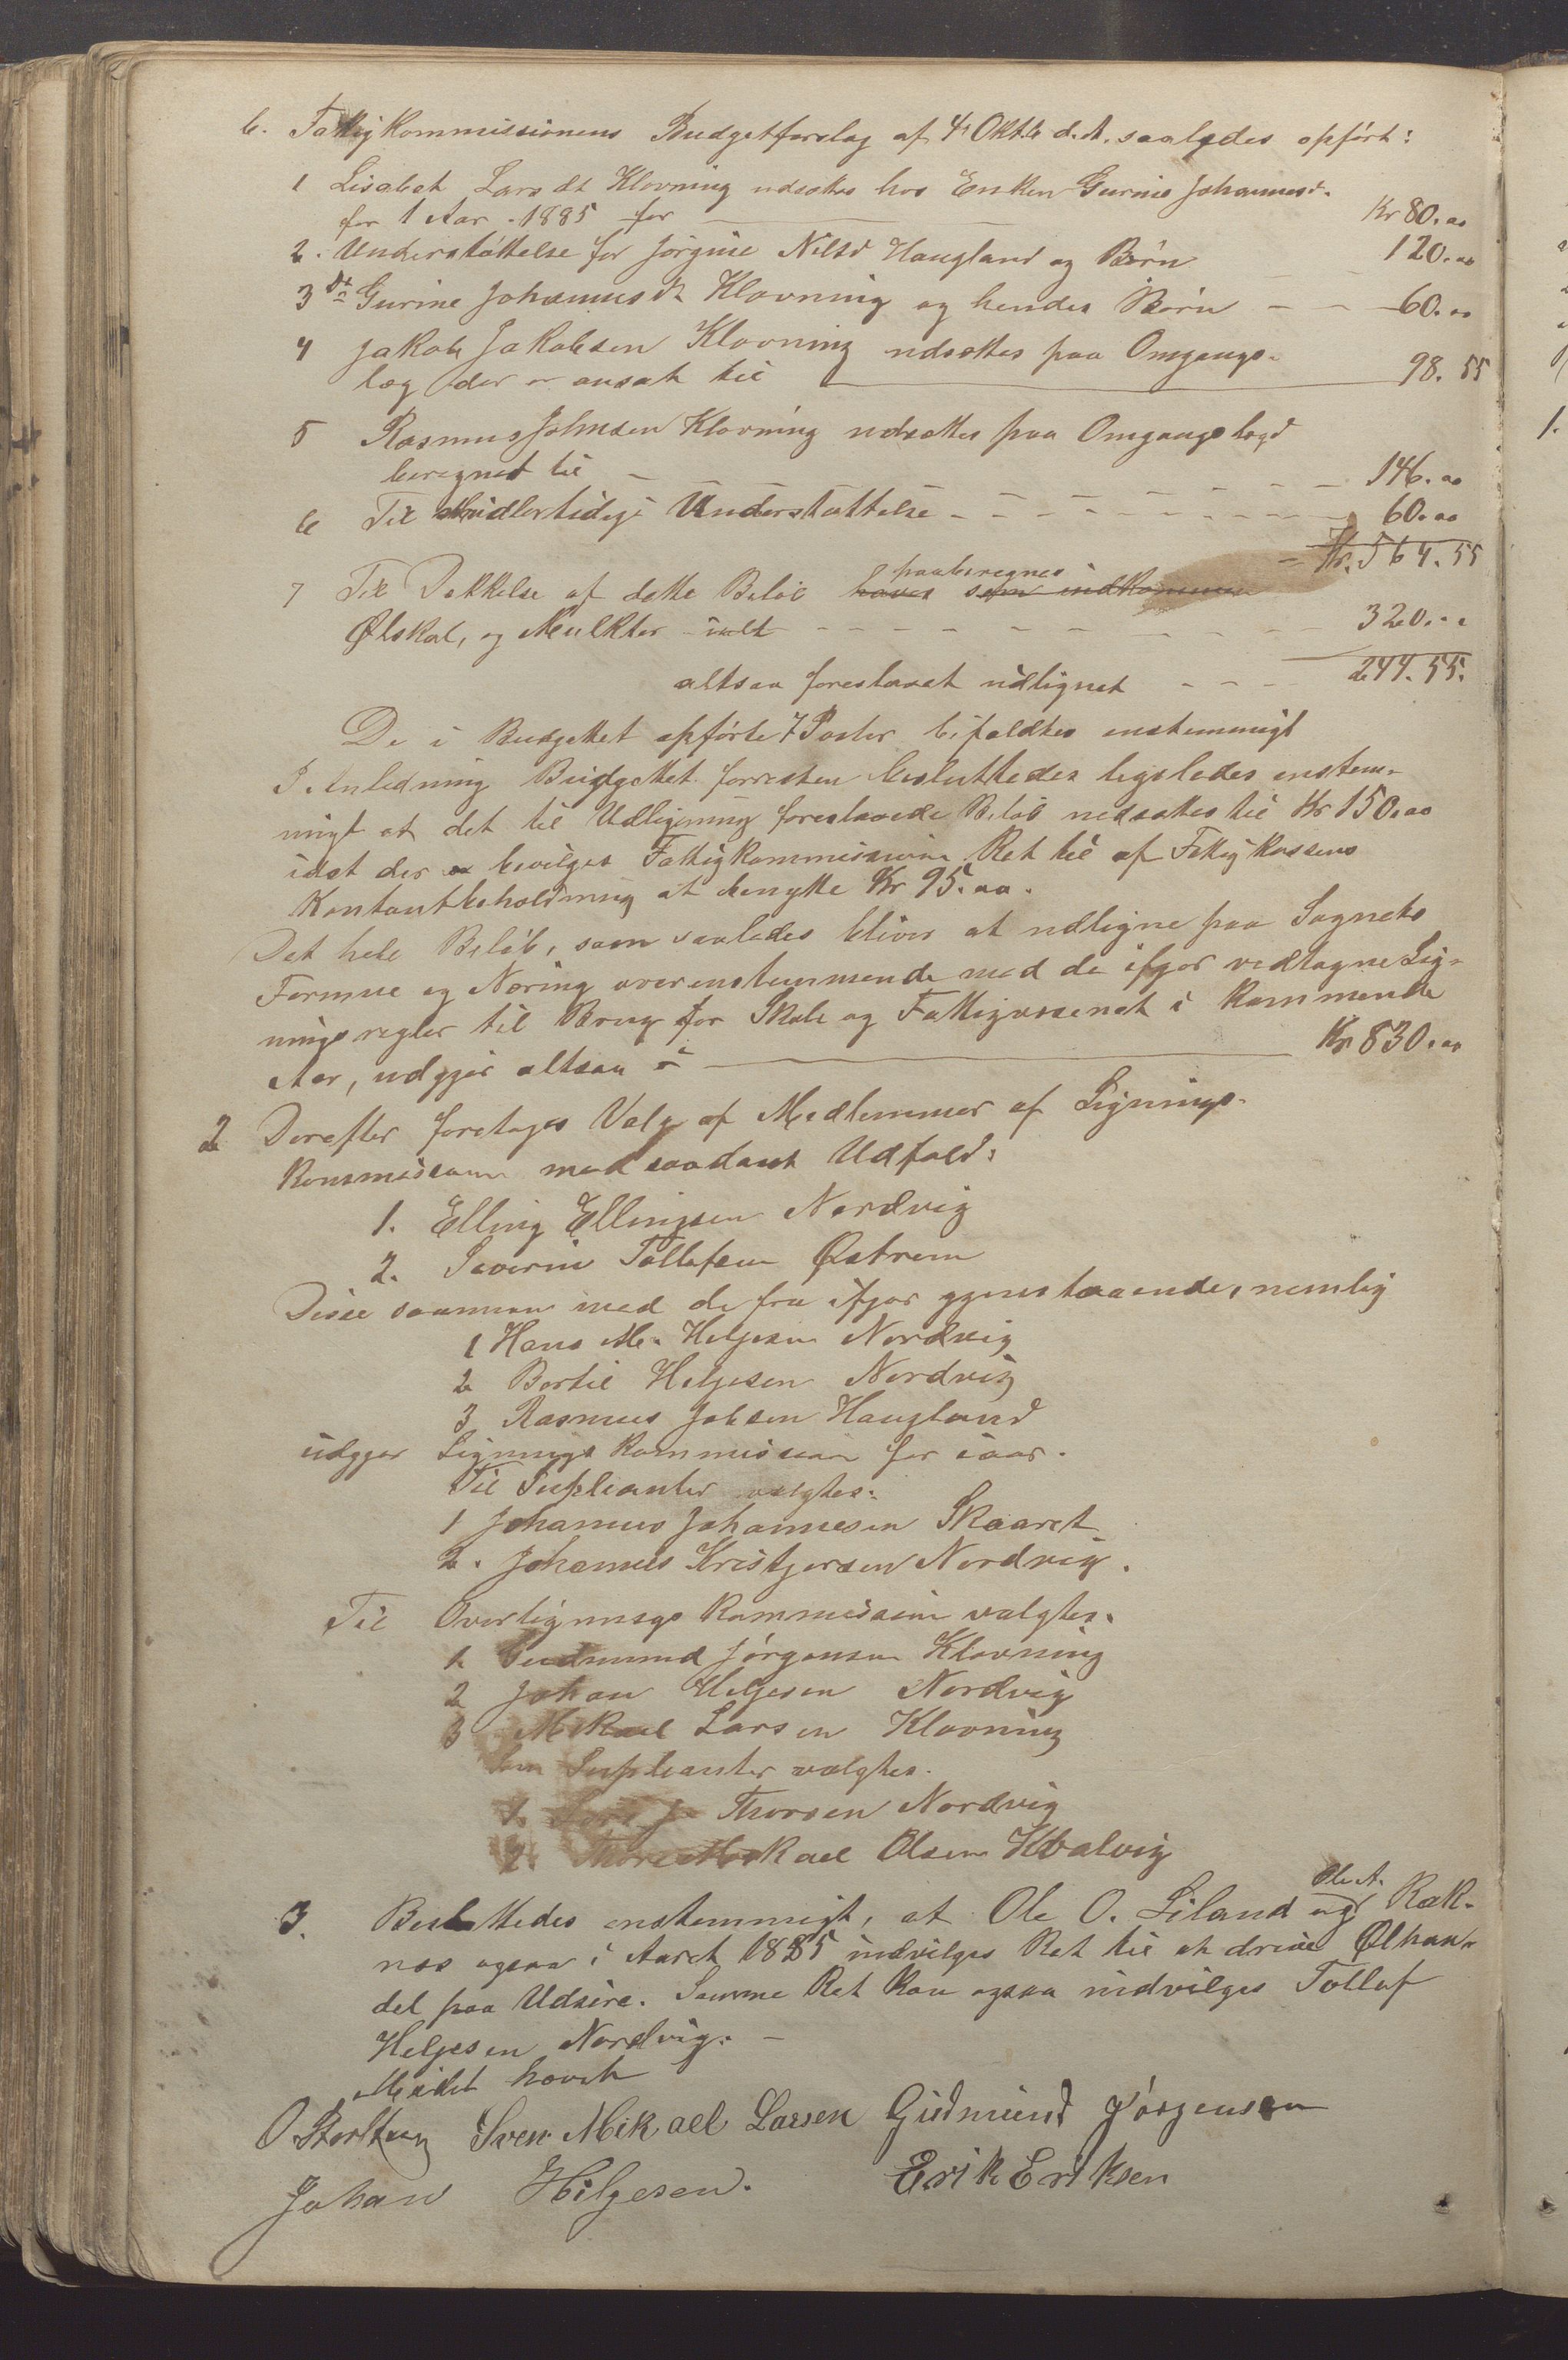 b. Fattigkommissionens Budgetforslag af 4 Oktb d. A. saaledes opført:
1 Lisabet Larsdt Klovning udsættes hos Enken Gurine Johannesd.
for 1 Aar. 1885 for Kr 80.00
2. Understøttelse for Jørgine Nilsd Haugland og Børn 120.00
3 do Gurine Johannesdt Klovning og hendes Børn 60.00
4 Jakob Jakobsen Klovning udsættes paa Omgangs-
læg der er ansat til 98.55
5 Rasmus Johnsen Klovning udsættes paa Omgangslægd
beregnet til 146.00
6 Til midlertidig Understøttelse 60.00
Kr. 564.55
paaberegnes
7 Til Dækkelse af dette Beløb haves som indkommen
Ølskat, og Mulkter ialt 320.00
altsaa foreslaaet udlignet 244.55.
De i Budgettet opførte 7 Poster bifaldtes enstemmigt
I Anledning Budgettet forresten besluttedes ligeledes enstem-
migt at det til Udligning foreslaaede Beløb nedsættes til Kr 150.00
idet der bevilges Fattigkommissionen Ret til af Fattigkassens
Kontantbeholdning at benytte Kr 95.00.
Det hele Beløb, som saaledes bliver at udligne paa Sognets
Formue og Næring overensstemmende med de ifjor vedtagne Lig-
ningsregler til Brug for Skole og Fattigvæsenet i kommende
Aar, udgjør altsaa Kr 830.00
2 Derefter foretoges Valg af Medlemmer af Lignings-
kommissionen med saadant Udfald:
1. Elling Ellingsen Nordvig
2. Severin Tollefsen Østrem
Disse sammen med de fra ifjor gjenstaaende, nemlig
1 Hans M. Helgesen Nordvig
2 Bertil Helgesen Nordvig
3 Rasmus Jobsen Haugland
udgjør Ligningskommissionen for iaar.
Til Suplianter valgtes:
1 Johannes Johannesen Skaaret
2. Johannes Kristjersen Nordvig.
Til Overligningskommission valgtes.
1 Gudmund Jørgensen Klovning
2 Johan Helgesen Nordvig
3 Mikael Larsen Klovning
Som Suplianter valgtes.
1. Thorsen Nordvig
2. Mikael Olsen Hovalvig
3. Besluttedes enstemmigt, at Ole O. Liland og Ole A. Røk-
nes ogsaa i Aaret 1885 indvilges Ret til at drive Ølhan-
del paa Udsire. Samme Ret kan ogsaa indvilges Tollef
Helgesen Nordvig.
Mødet hævet
O. Storstein Sven Mikael Larsen Gudmund Jørgensen
Johan Hilgesen. Erik Eriksen